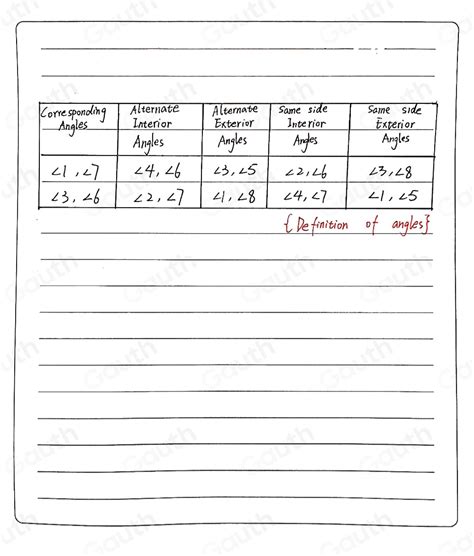 Corresponding Angles | Alternate Interior Angles | Alternate Exterior Angles | Same side Interior Angles | Same side Exterior Angles
∠1, ∠7 | ∠4, ∠6 | ∠3, ∠5 | ∠2, ∠6 | ∠3, ∠8
∠3, ∠6 | ∠2, ∠7 | ∠1, ∠8 | ∠4, ∠7 | ∠1, ∠5
{Definition of angles}
Gauth